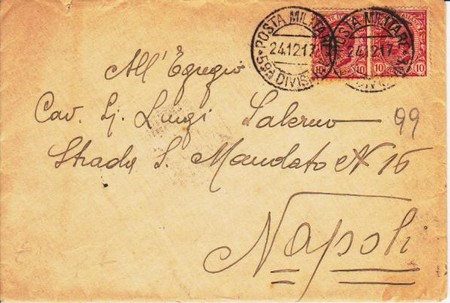 POSTA MILITARE
24.12.17
55ª DIVISIONE
POSTA MILITARE
24.12.17
10 10 10
All'Egregio
Cav. Luigi Salerno
99
Strada S. Mandato N 16
Napoli